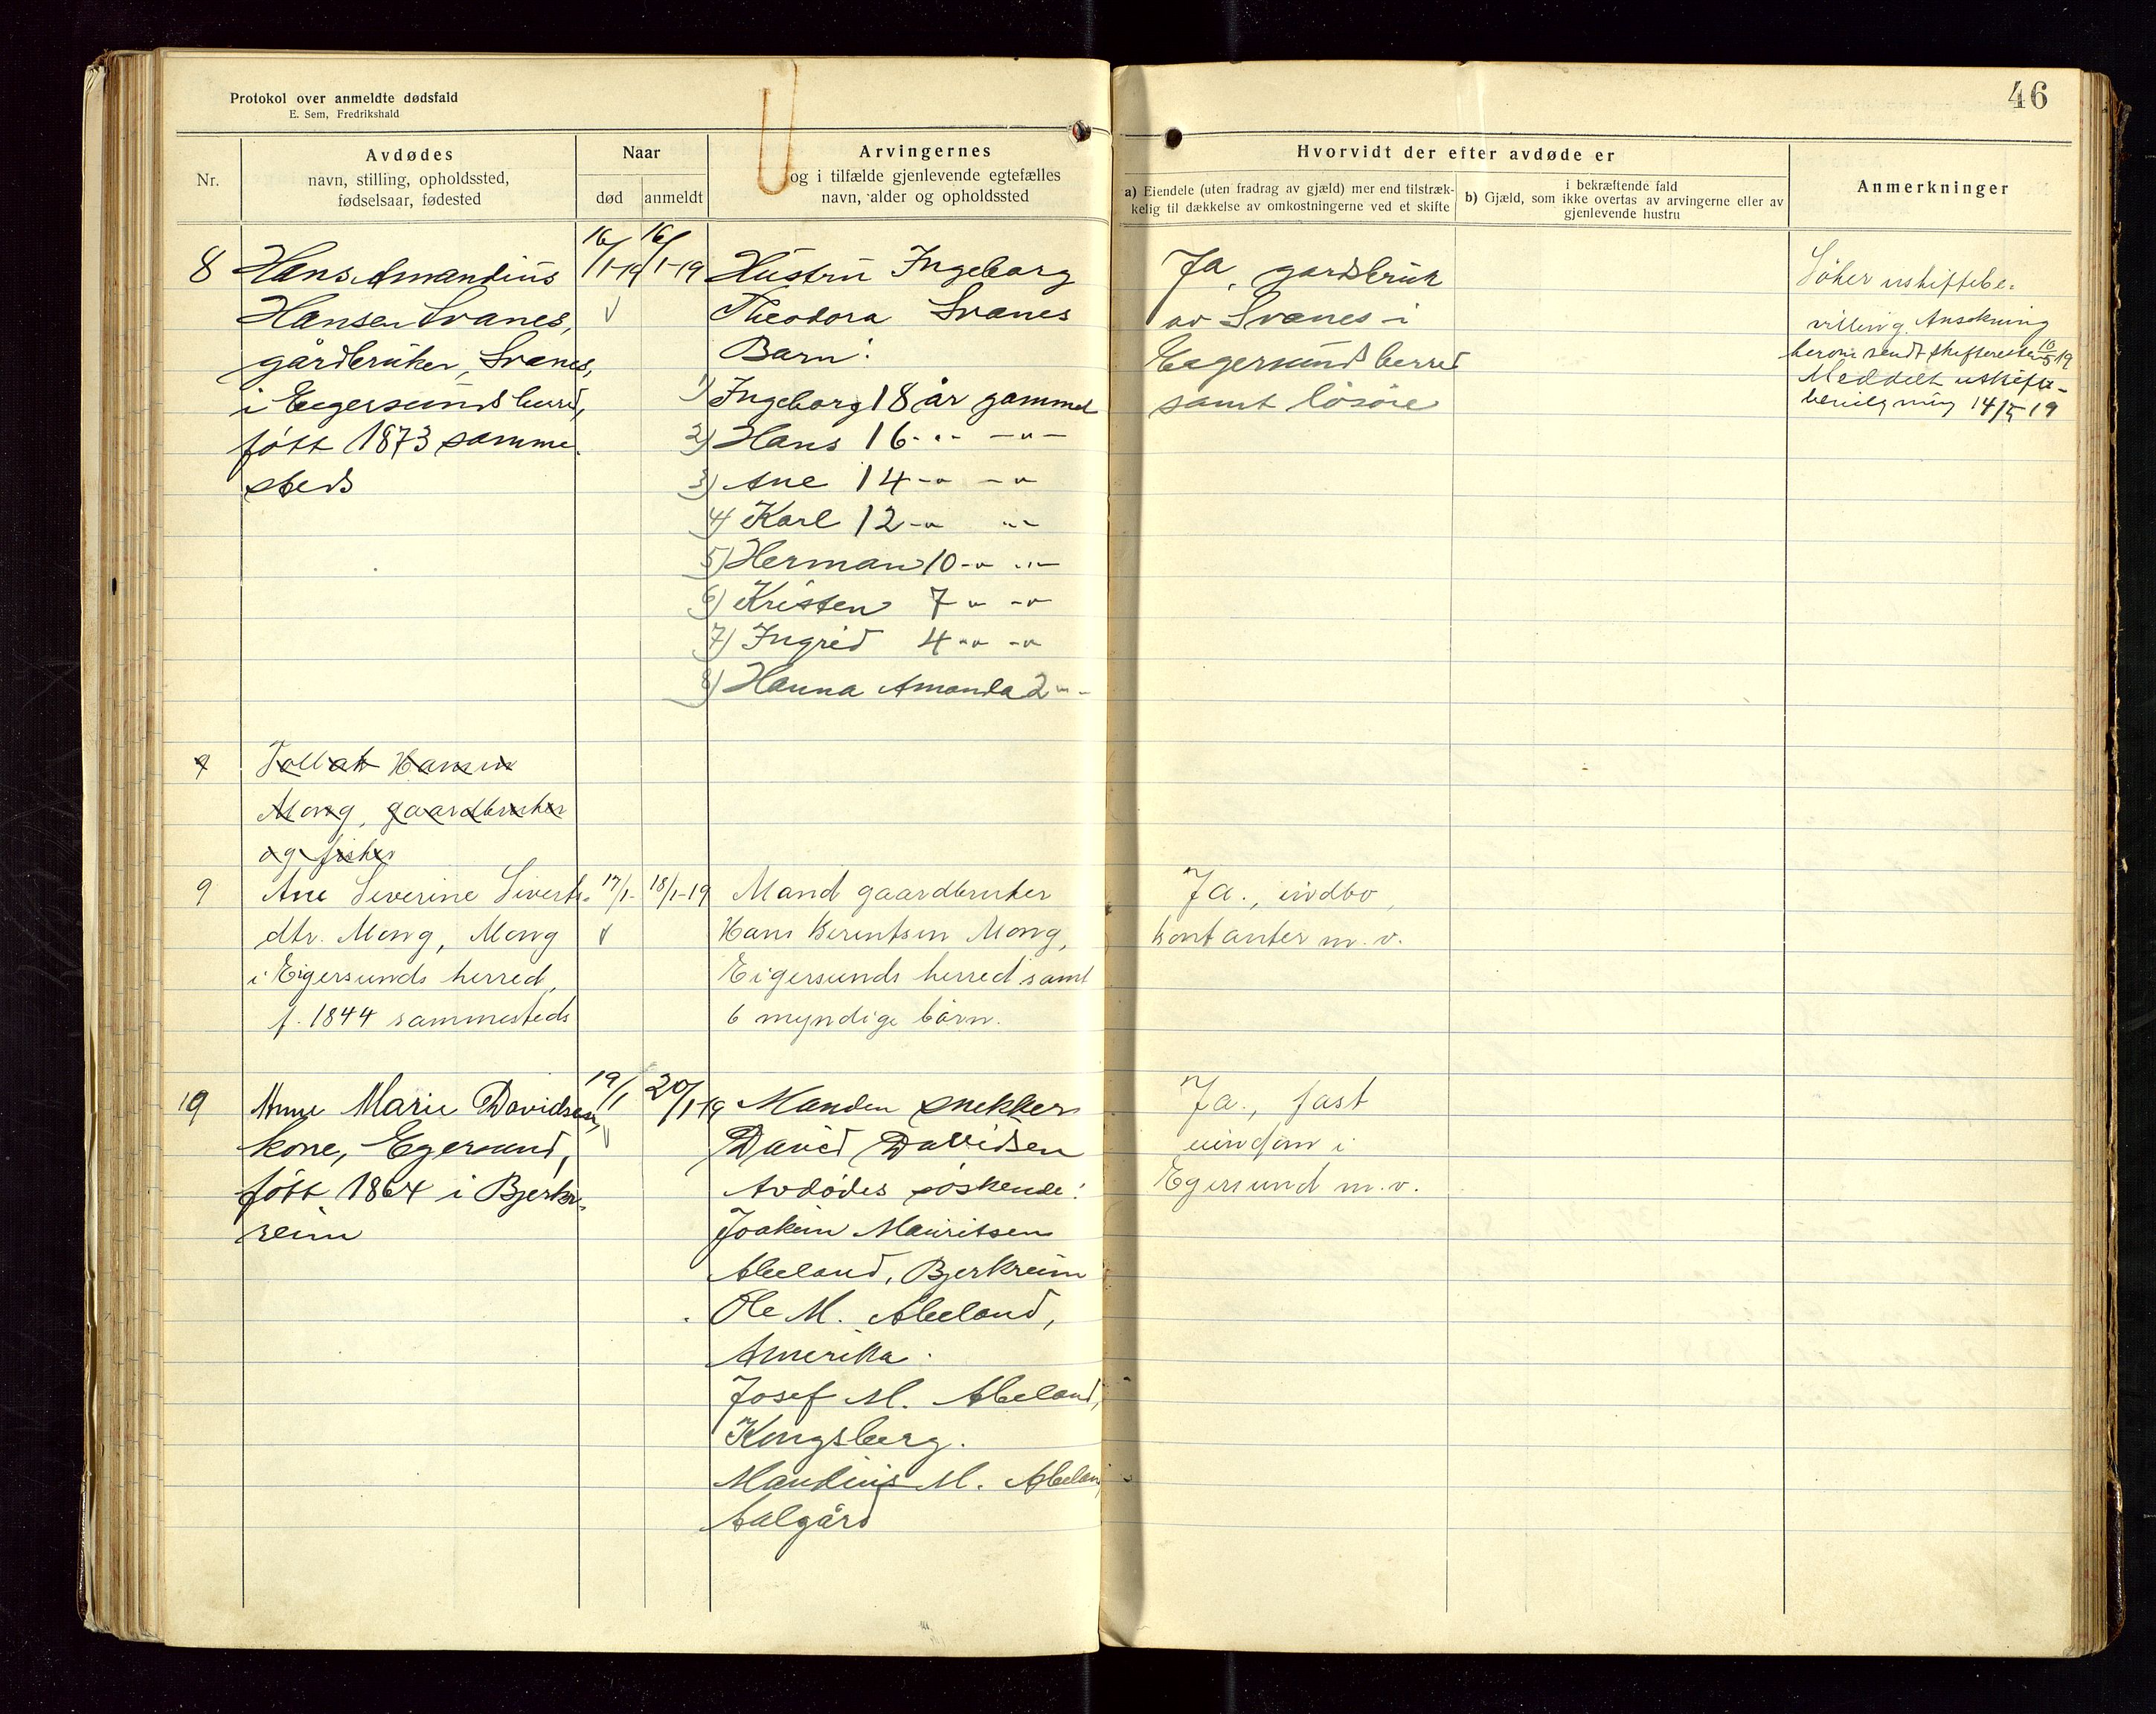 Protokol over anmeldte dødsfald
E. Sem, Fredrikshald
46
Nr.
Avdødes
navn, stilling, opholdssted,
fødselsaar, fødested
Naar
død
anmeldt
Arvingernes
og i tilfælde gjenlevende egtefælles
navn, alder og opholdssted
Hvorvidt der efter avdøde er
a) Eiendele (uten fradrag av gjæld) mer end tilstræk-
kelig til dækkelse av omkostningerne ved et skifte
i bekræftende fald
b) Gjæld, som ikke overtas av arvingerne eller av
gjenlevende hustru
Anmerkninger
8
Hans Amandius
Hansen Svanes,
gårdbruker, Svanes,
i Eegersunds herred,
født 1873 samme-
steds
16/1-19
16/1-19
Hustru Ingeborg
Theodora Svanes
Barn:
1) Ingeborg 18 år gammel
2) Hans 16 -"- -"-
3) Ane 14 -"- -"-
4) Karl 12 -"- -"-
5) Herman 10 -"- -"-
6) Kristen 7 -"- -"-
7) Ingrid 4 -"- -"-
8) Hanna Amanda 2 -"-
Ja, gardsbruk
av Svanes i
Eegersunds herred
samt løsøre
Søker uskiftebe-
villing. Ansøkning
herom sendt skifteretten 10/5 19
Meddelt uskifte-
bevilgning 14/5 19
9
Tollak Hansen
Mong, gaardbruker
og fisker
9
Ane Severine Siverts-
dtr. Mong, Mong
i Eigersunds herred,
f. 1844 sammesteds
17/1-
18/1-19
Mand gaardbruker
Hans Berentsen Mong,
Eigersunds herred samt
6 myndige børn.
Ja., indbo,
kontanter m.v.
10
Anne Marie Davidsen,
kone, Egersund,
født 1864 i Bjerk-
reim
19/1
20/1-19
Manden snekker
David Davidsen
Avdødes søskende:
Joakim Mauritsen
Abeland, Bjerkreim
Ole M. Abeland,
Amerika.
Josef M. Abeland,
Kongsberg.
Mandius M. Abeland,
Aalgård
Ja., fast
eiendom i
Egersund m.v.